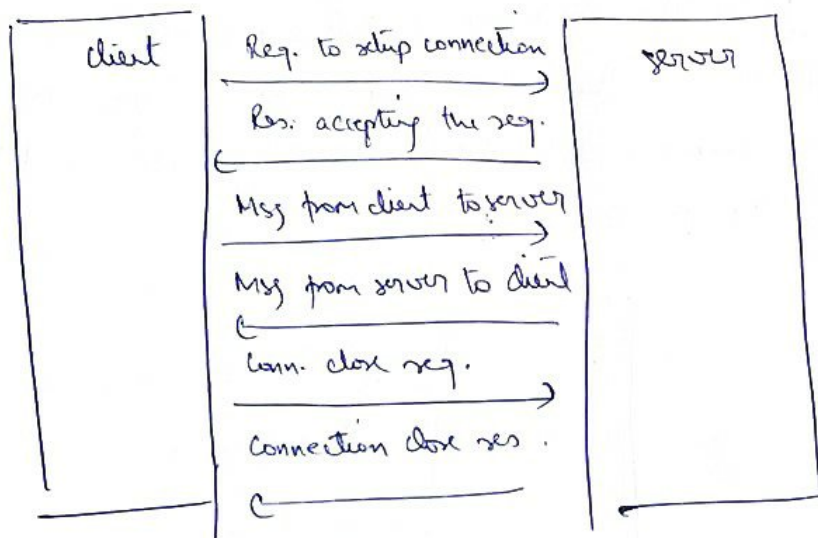 client
Req. to setup connection
server
Res. accepting the req.
Msg from client to server
Msg from server to client
Conn. close req.
Connection close res.